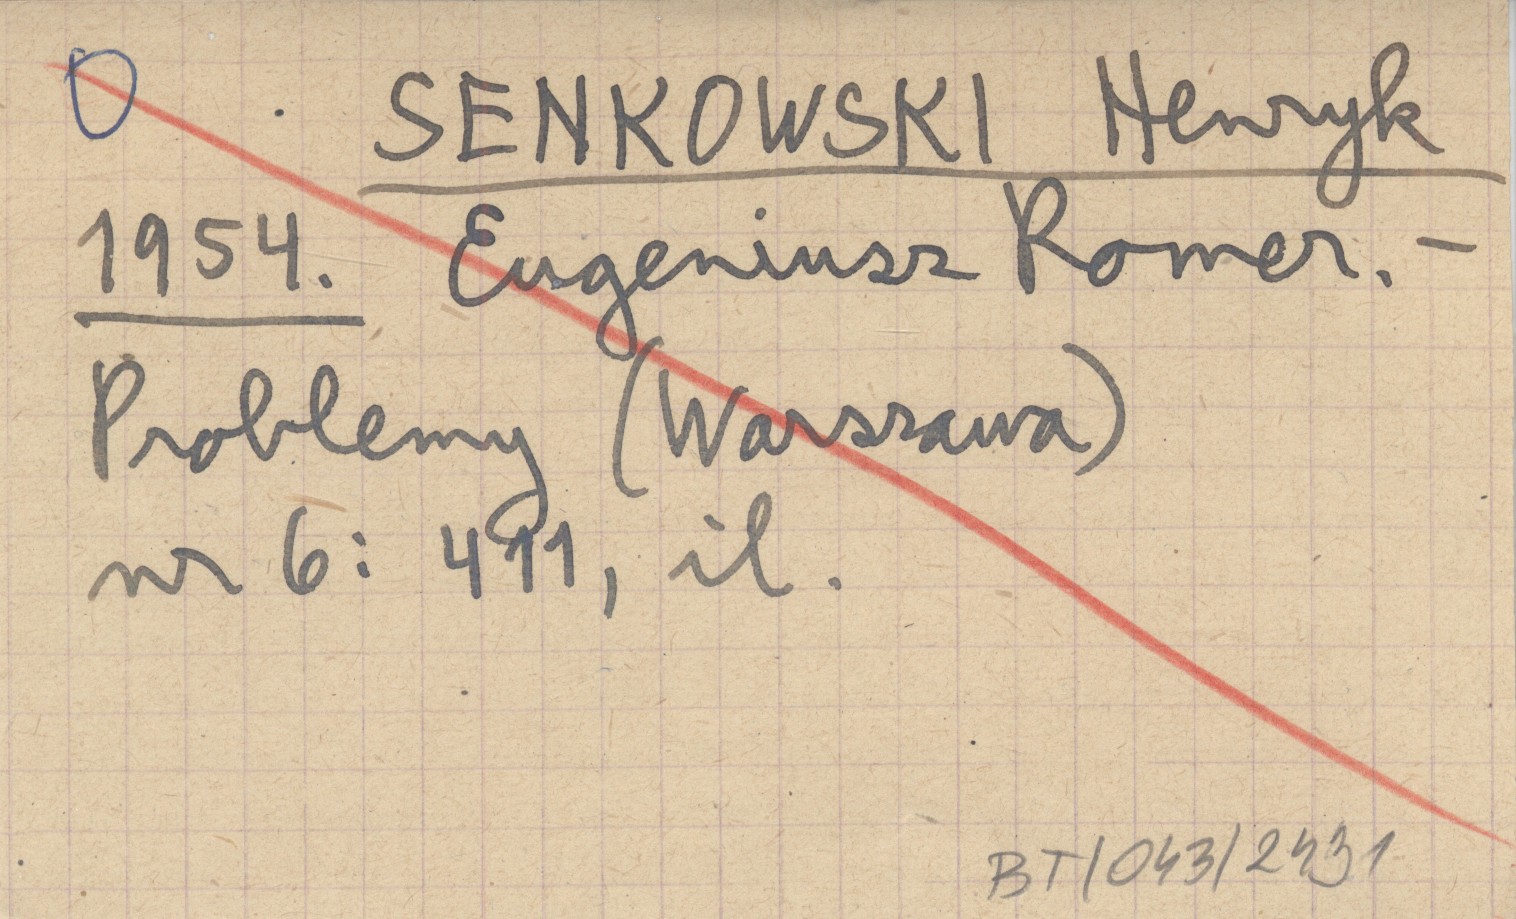 O
SENKOWSKI Henryk
1954. Eugeniusz Romer. -
Problemy (Warszawa)
nr 6: 411, il.
BT/043/2431